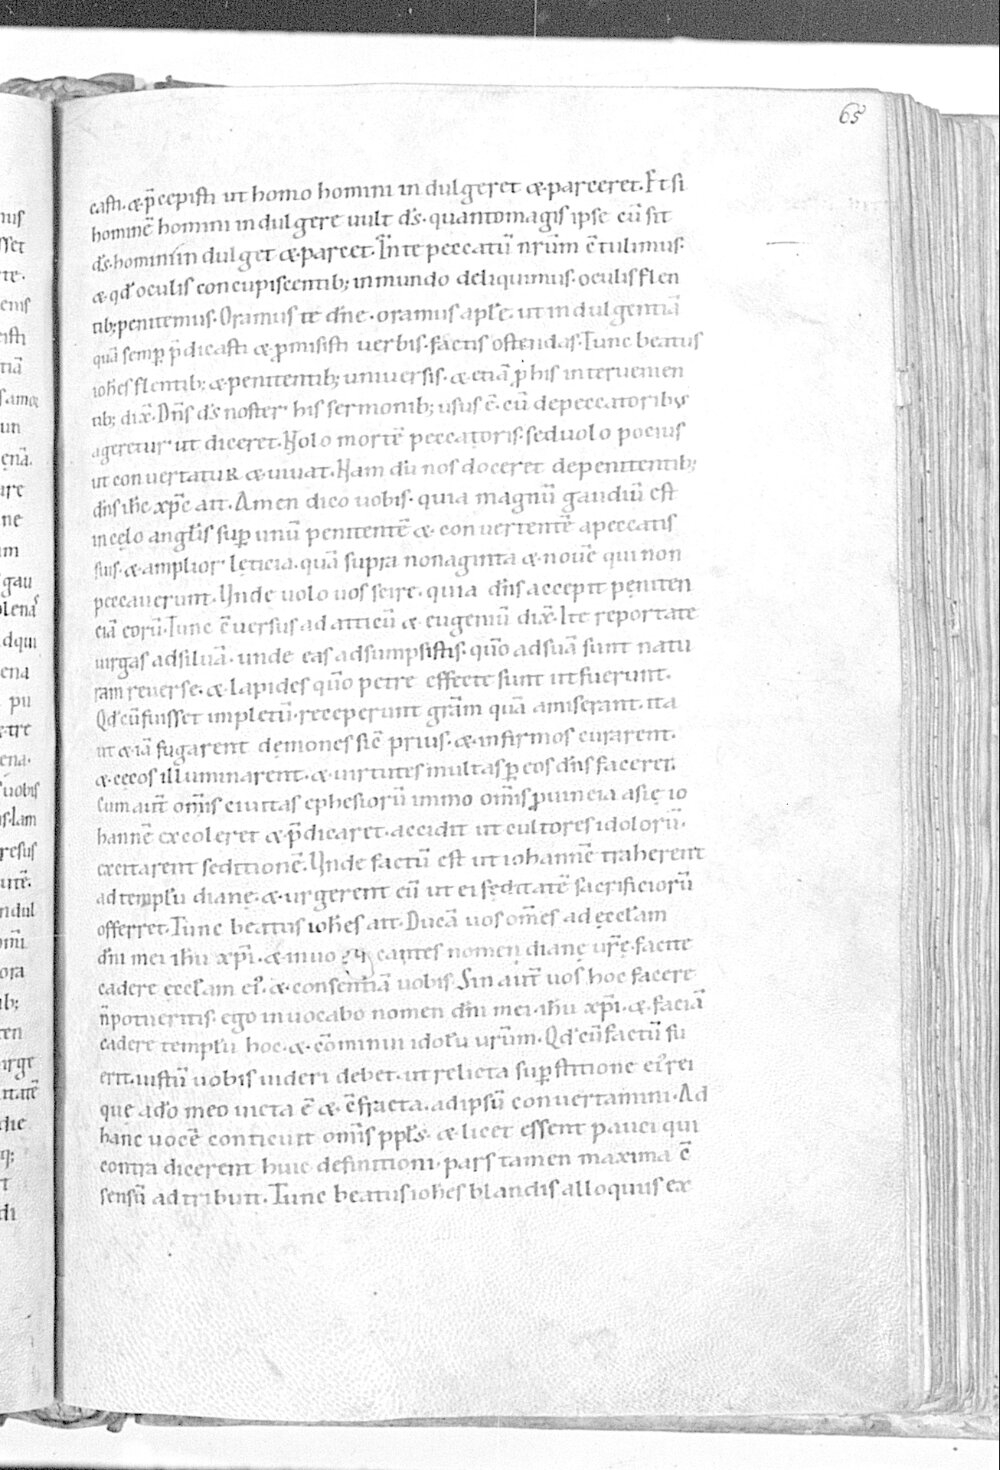 65
casti. & p̄cepisti ut homo homini indulgeret & parceret. Et si
hominē homini indulgere uult d̄s. quantomagis ipse cū sit
d̄s. homini indulget & parcet. In te peccatū nr̄um ē tulimus.
& qđ oculis concupiscentib; in mundo deliquimus. oculis flen
tib; penitemus. Oramus te dn̄e. oramus apl̄e. ut indulgentiā
quā semp̲ p̄dicasti & p̄misisti uerbis. factis ostendas. Tunc beatus
ioh̄es flentib; & penitentib; uniuersis. & etiā p̲ his interuenien
tib; dix̄. Dn̄s d̄s noster his sermonib; usus ē. cū de peccatoribus
ageretur ut diceret. Nolo mortē peccatoris. sed uolo pocius
ut conuertatur & uiuat. Nam dū nos doceret de penitentib;
dn̄s ih̄c xp̄c ait. Amen dico uobis. quia magnū gaudiū est
in cęlo angl̄is sup̲ unū penitentē & conuertentē a peccatis
suis. & amplior lęticia. quā supra nonaginta & nouē qui non
peccauerunt. Unde uolo uos scire. quia dn̄s accepit pęniten
ciā eorū. Tunc ē uersus ad atticū & eugeniū dix̄. Ite reportate
uirgas ad siluā. unde eas adsumpsistis. qūo ad suā sunt natu
ram reuerse. & lapides qūo petre effecte sunt ut fuerunt.
Qđ cū fuisset impletū. receperunt gr̄am quā amiserant. ita
ut & iā fugarent demones sic̄ prius. & infirmos curarent.
& cęcos illuminarent. & uirtutes multas p̲ eos dn̄s faceret.
Cum aut̄ om̄is ciuitas ephesiorū immo om̄is p̲uincia asię io
hannē excoleret & p̄dicaret. accidit ut cultores idolorū.
excitarent seditionē. Unde factū est ut iohannē traherent
ad templū dianę. & urgerent eū ut ei sęditatē sacrificiorū
offerret. Tunc beatus ioh̄es ait. Ducā uos om̄es ad ęccl̄am
dn̄i mei ih̄u xp̄i. & inuocantes nomen dianę ur̄e. facite
cadere ęccl̄am ei'. & consentiā uobis. Sin aut̄ uos hoc facere
n̄ potueritis. ego inuocabo nomen dn̄i mei ih̄u xp̄i. & faciā
cadere templū hoc. & cōminui idolū urūm. Qđ cū factū fu
erit. iustū uobis uideri debet. ut relicta sup̲stitione ei' rei
que a dō meo uicta ē & c̄fracta. ad ipsū conuertamini. Ad
hanc uocē conticuit om̄is ppl̄s. & licet essent pauci qui
contra dicerent huic definitioni. pars tamen maxima c̄
sensū adtribuit. Tunc beatus ioh̄es blandis alloquiis ex